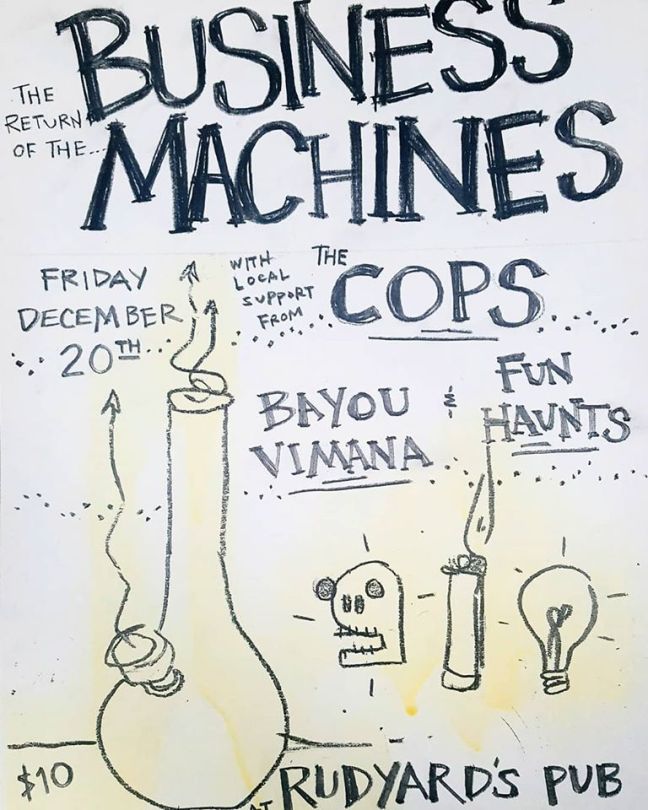 THE RETURN OF THE...
BUSINESS
MACHINES
FRIDAY
DECEMBER
20TH
WITH
LOCAL
SUPPORT
FROM
THE
COPS
BAYOU
VIMANA
&
FUN
HAUNTS
$10
AT RUDYARD'S PUB